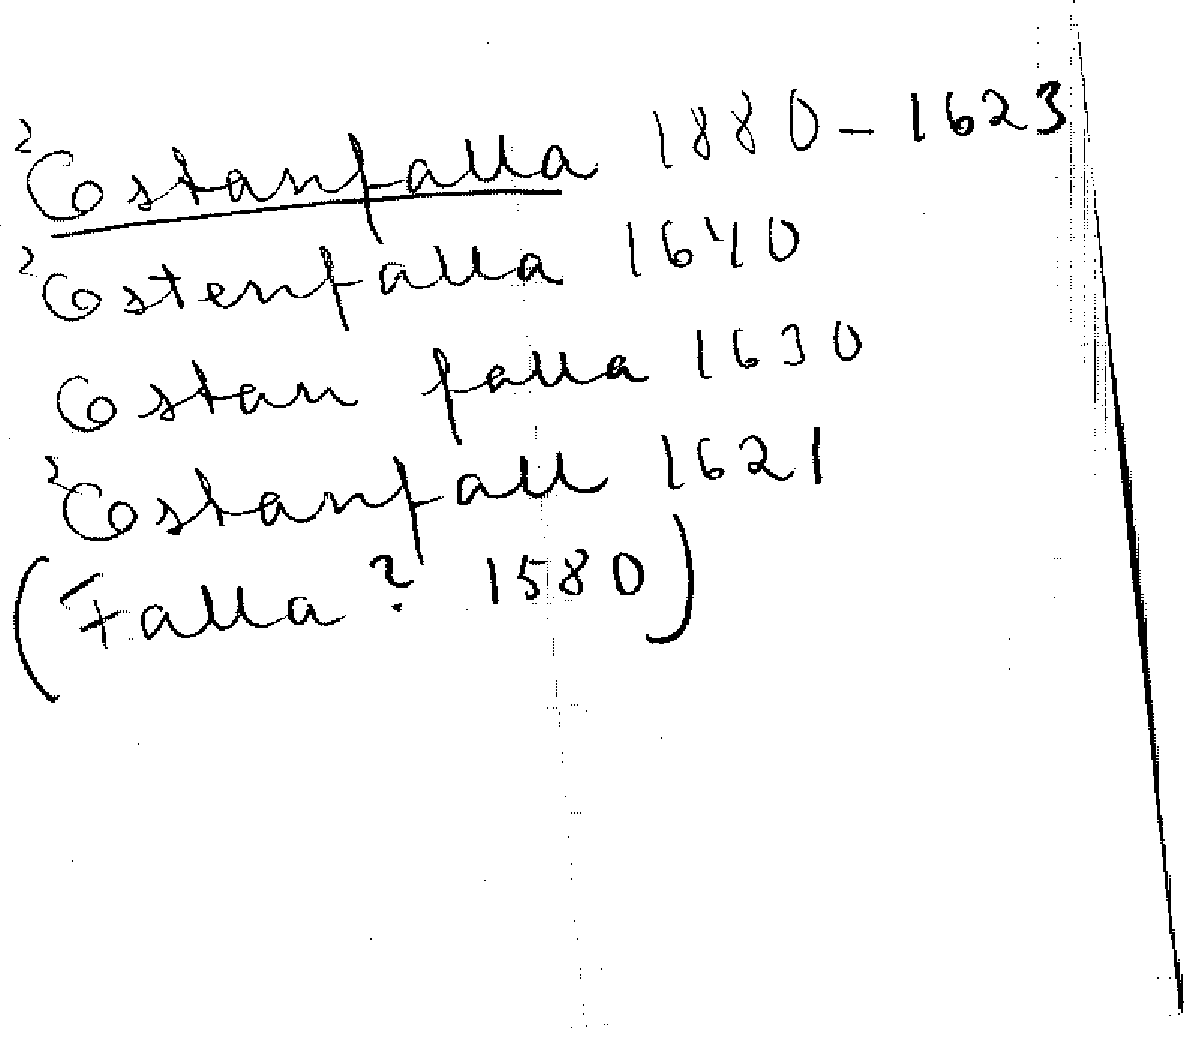 ²Östanfalla 1880-1623
²Östenfalla 1640
Östan falla 1630
²Östanfall 1621
(Falla? 1580)